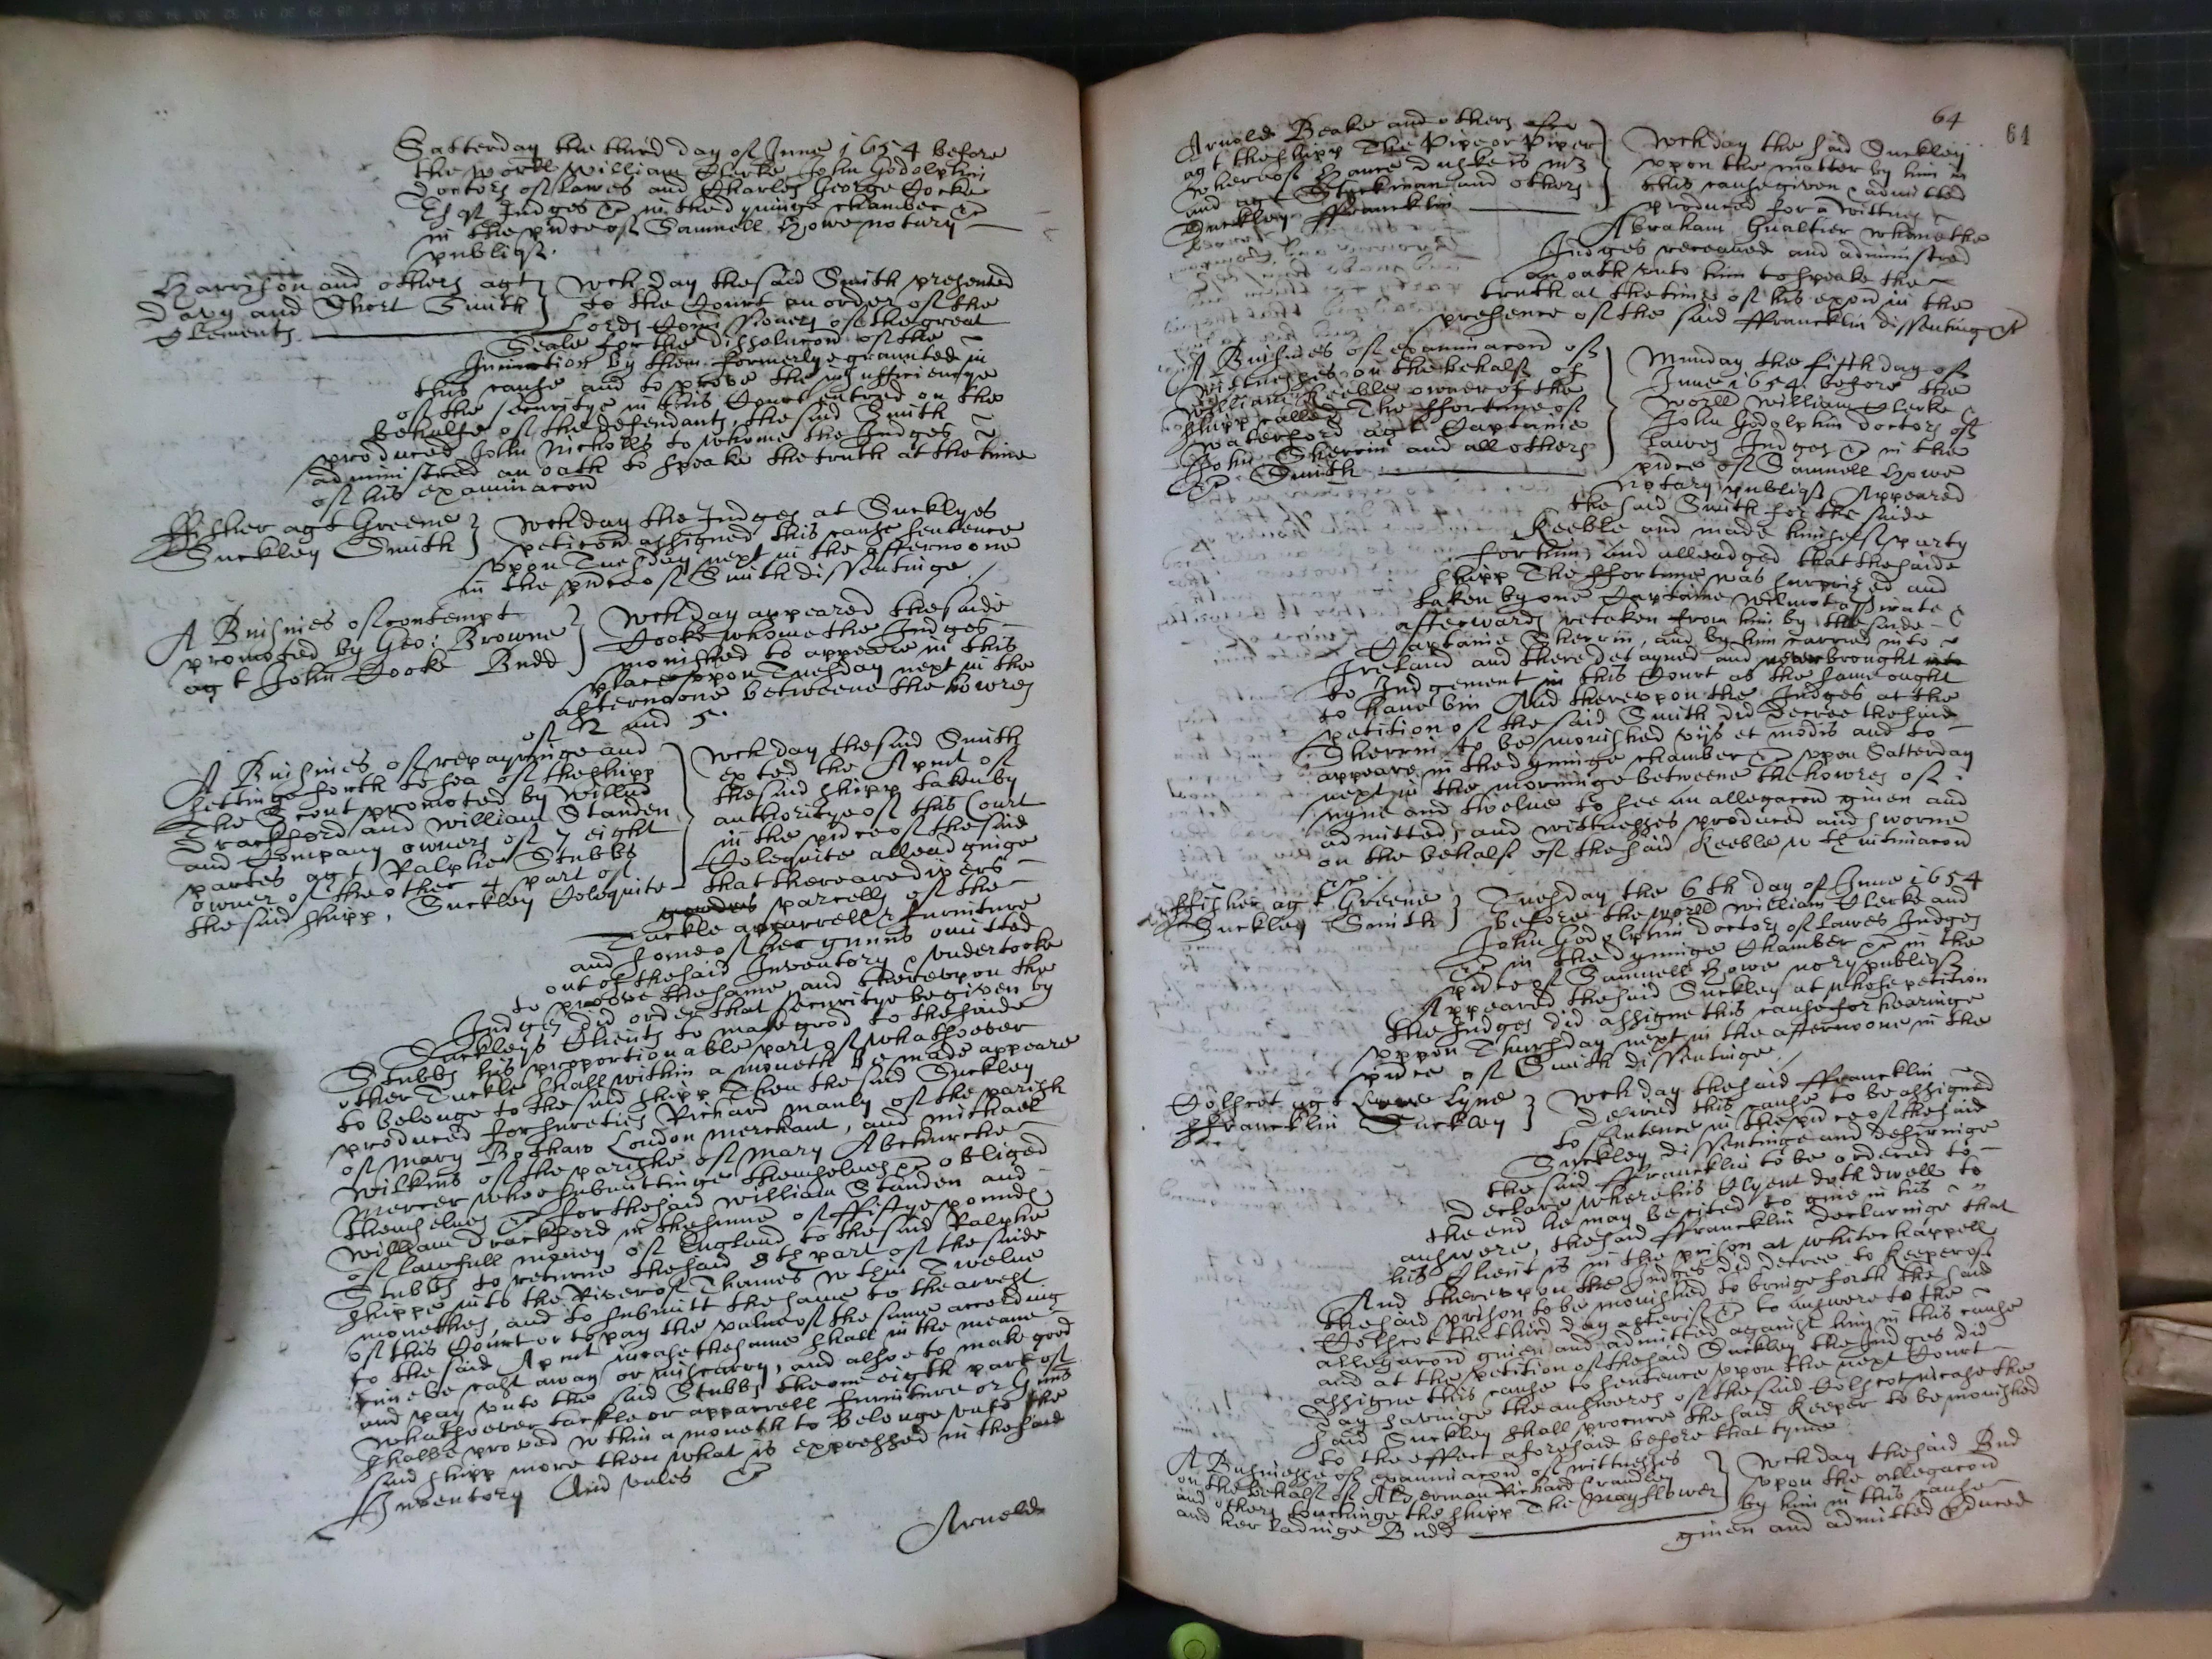 Satterday the third day of June 1654 before
the worll William Clerke John Godolphin
doctors of Lawes and Charles George Cocke
Esqr Judges &c in the dyninge chamber &c
in the pñce of Samuell Howe notary
publiqȝ.
Harrison and others agt
Davy and Short Smith
Clements
wch day the said Smith presented
to the Court an order of the
Lords Comissioners of the great
Seale for the dissolucon of the
Iniunction by them formerlye graunted in
this cause and to prove the insufficiencye
of the securitye in this Court entred on the
behalfe of the defendants, the said Smith
produced John Nicholls to whome the Judges
administred an oath to speake the truth at the time
of his examinacon
ffisher agt Greene
Suckley Smith
wch day the Judges at Suckleys
peticon assigned this cause sentence
upon Tuesday next in the afternoone
in the pñce of Smith dissentinge
A Busines of contempt
promoted by Geo: Browne
agt John Cooke Budd
wch day appeared the saide
Cooke whome the Judges
monished to appeare in this
place upon Tuesday next in the
afternoone betweene the howres
of 2 and 5.
A Busines of repayringe and
settinge forth to sea of the shipp
The Scout promoted by Willm
Drackford and William Standen
and Company owners of 7 eight
partes agt Ralphe Stubbs
owner of the other part of
the said shipp, Suckley Colequite
wch day the said Smith
exted the Apmt of
the said shipp taken by
authoritye of this Court
in the pñce of the said
Colequite alleadginge
that there are divers
goodes parcells of the
Tackle apparrell & furniture
and some of her gunns omitted
out of the said Inventory & undertooke
to proove the same, and thereupon the
Judges did order that securitye be given by
Suckleys Clients to make good to the saide
Stubbs his proportionable part of whatsoever
other Tackle shall within a moneth be made appeare
to belonge to the said shipp Then the said Suckley
produced for sureties Richard Manly of the parish
of Mary Bothaw London Merchant, and Michael
Wilkins of the parishe of Mary Abchurche
Mercer whoe submittinge themselves &c obliged
themselves &c for the said William Standen and
William Drackford in the summe of ffiftye pounds
of lawfull money of England to the said Ralphe
Stubbs to returne the said 8th part of the saide
shippe into the River of Thames wthin Twelve
monethes, and to submitt the same to the arrest
of this Court or to pay the value of the same according
to the said Apmt incase the same shall in the meane
time be cast away or miscarry, and alsoe to make good
and pay unto the said Stubbs the one eigth part of
whatsoever tackle or apparrell furniture or Guns
shalbe proved wthin a moneth to belonge unto the
said shipp more then what is expressed in the said
Inventory And unles &c
Arnold
64
64
Arnold Beake and others
agt the shipp The Pipe or Piper
whereof Hance
and agt Stockman and others
Suckley ffrancklin
wch day the said Suckley
upon the matter by him in
this cause given & admitted
produced for a wittnes
Abraham Gualtier whome the
Judges received and administred
an oath unto him to speake the
truth at the time of his expon in the
presence of the said ffrancklin dissenting &c
A Busines of examinacon of
wittnesses on the behalfe of
William Keeble owner of the
shipp called The ffortune of
Waterford agt Captaine
John Sherrin and all others
&c Smith
Munday the fifth day of
June 1654 before the
worll William Clerke &
John Godolphin doctors of
Lawes Judges &c in the
pñce of Samuell Howe
notary publiqȝ Appeared
the said Smith for the saide
Keeble and made himselfe party
for him, and alleadged that the saide
shipp The ffortune was surprised and
taken by one Captaine Wilmot a Pirate &
afterwards retaken from him by the saide
Captaine Sherrin, and by him carried into
Ireland and there detayned and never brought into
to Judgement in this Court as the same ought
to have bin And thereupon the Judges at the
petition of the said Smith did decree the said
Sherrin to be monished vijs et modis and to
appeare in the dyninge chamber &c upon Satterday
next in the morninge betweene the howres of
nyne and twelve to see an allegacon given and
admitted, and wittnesses produced and sworne
on the behalf of the said Keeble wth intimacon
&c
ffisher agt Greene
Suckley Smith
Tuesday the 6th day of June 1654
before the worll William Clerke and
John Godolphin doctors of Lawes Judges
&c in the dyninge Chamber &c in the
pñce of Samuell Howe nory publiqȝ
Appeared the said Suckley at whose petition
the Judges did assigne this cause for hearinge
uppon Thursday next in the afternoone in the
pñce of Smith dissentinge
Colscot agt Lyne
ffrancklin Suckley
wch day the said ffrancklin
desired this cause to be assigned
to sentence in the pñce of the said
Suckley dissentinge and desiringe
the said ffrancklin to be ordered to
declare where his Clyent doth dwell to
the end he may be cited to give in his
answere, the said ffrancklin declaringe that
his Client is in the prison at Whitechappell
And thereupon the Judges did decree to Keeper of
the said prison to be monished to bringe forth the said
Colscot the third day after &c to answere to the
allegacon given and admitted against him in this cause
and at the petition of the said Suckley the Judges did
assigne this cause to sentence upon the next Court
day havinge the answeres of the said Colscot incase the
said Suckley shall procure the said Keeper to be monished
to the effect aforesaid before that tyme
A Businesse of examinacon of wittnesses
on the behalf of Alderman Richard
and others touchinge the shipp The Mayflower
and her ladinge Budd
wch day the said Bud
upon the allegacon
by him in this cause
given and admitted produced